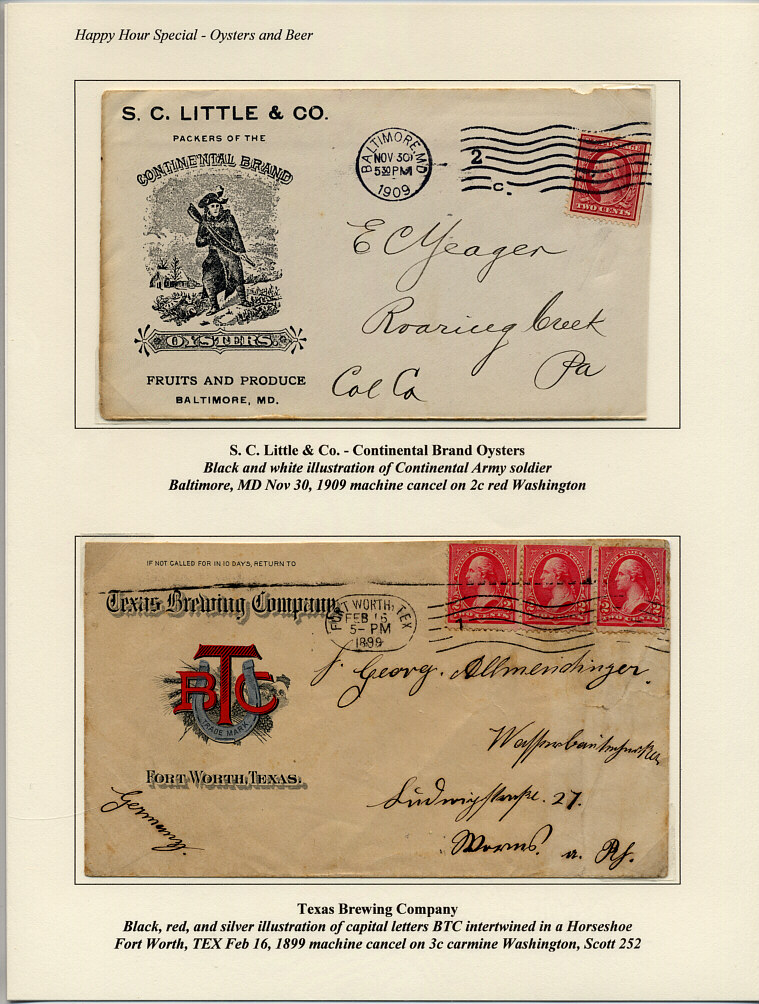 Happy Hour Special - Oysters and Beer
S. C. LITTLE & CO.
PACKERS OF THE
CONTINENTAL BRAND
OYSTERS.
FRUITS AND PRODUCE
BALTIMORE, MD.
BALTIMORE, MD.
NOV 30
5 30 PM
1909
2
C.
TWO CENTS
E C Yeager
Roaring Creek
Col Co Pa
S. C. Little & Co. - Continental Brand Oysters
Black and white illustration of Continental Army soldier
Baltimore, MD Nov 30, 1909 machine cancel on 2c red Washington
IF NOT CALLED FOR IN 10 DAYS, RETURN TO
Texas Brewing Company
BTC
TRADE MARK
FORT WORTH, TEXAS.
Germany.
FORT WORTH, TEX
FEB 16
5- PM
1899
1
Georg. Allmendinger.
Ludwigstraße. 27.
Worms. a. Rh.
Texas Brewing Company
Black, red, and silver illustration of capital letters BTC intertwined in a Horseshoe
Fort Worth, TEX Feb 16, 1899 machine cancel on 3c carmine Washington, Scott 252